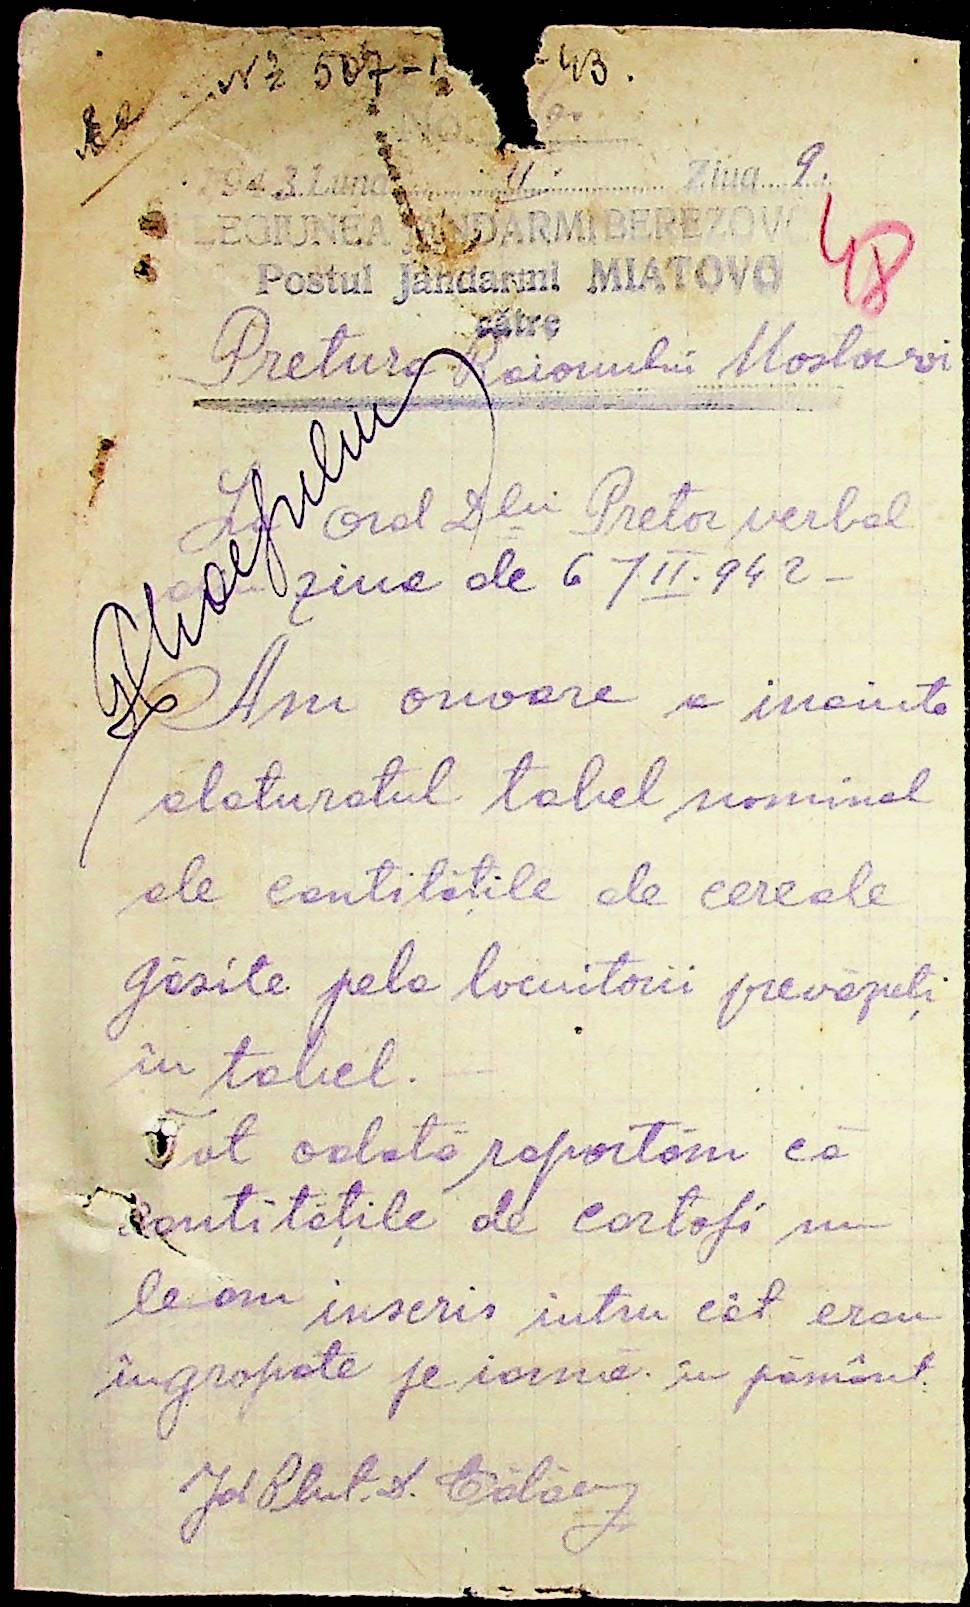 № 507 - 43.
No.
1943 Luna II Ziua 9.
LEGIUNEA JANDARMI BEREZOV
Postul Jandarmi MIATOVO
către
48
Pretura Raionului Mostovoi
La ord Dlui Pretor verbal
ziua de 6 / II. 942 -
Am onoare a inainta
alaturatul tabel nominal
de cantitățile de cereale
găsite pela locuitorii prevăzuți
în tabel. -
Tot odată raportăm că
cantitățile de cartofi nu
le am inscris intru cât erau
îngropate pe iarnă în pământ.
Jd Plut. D.